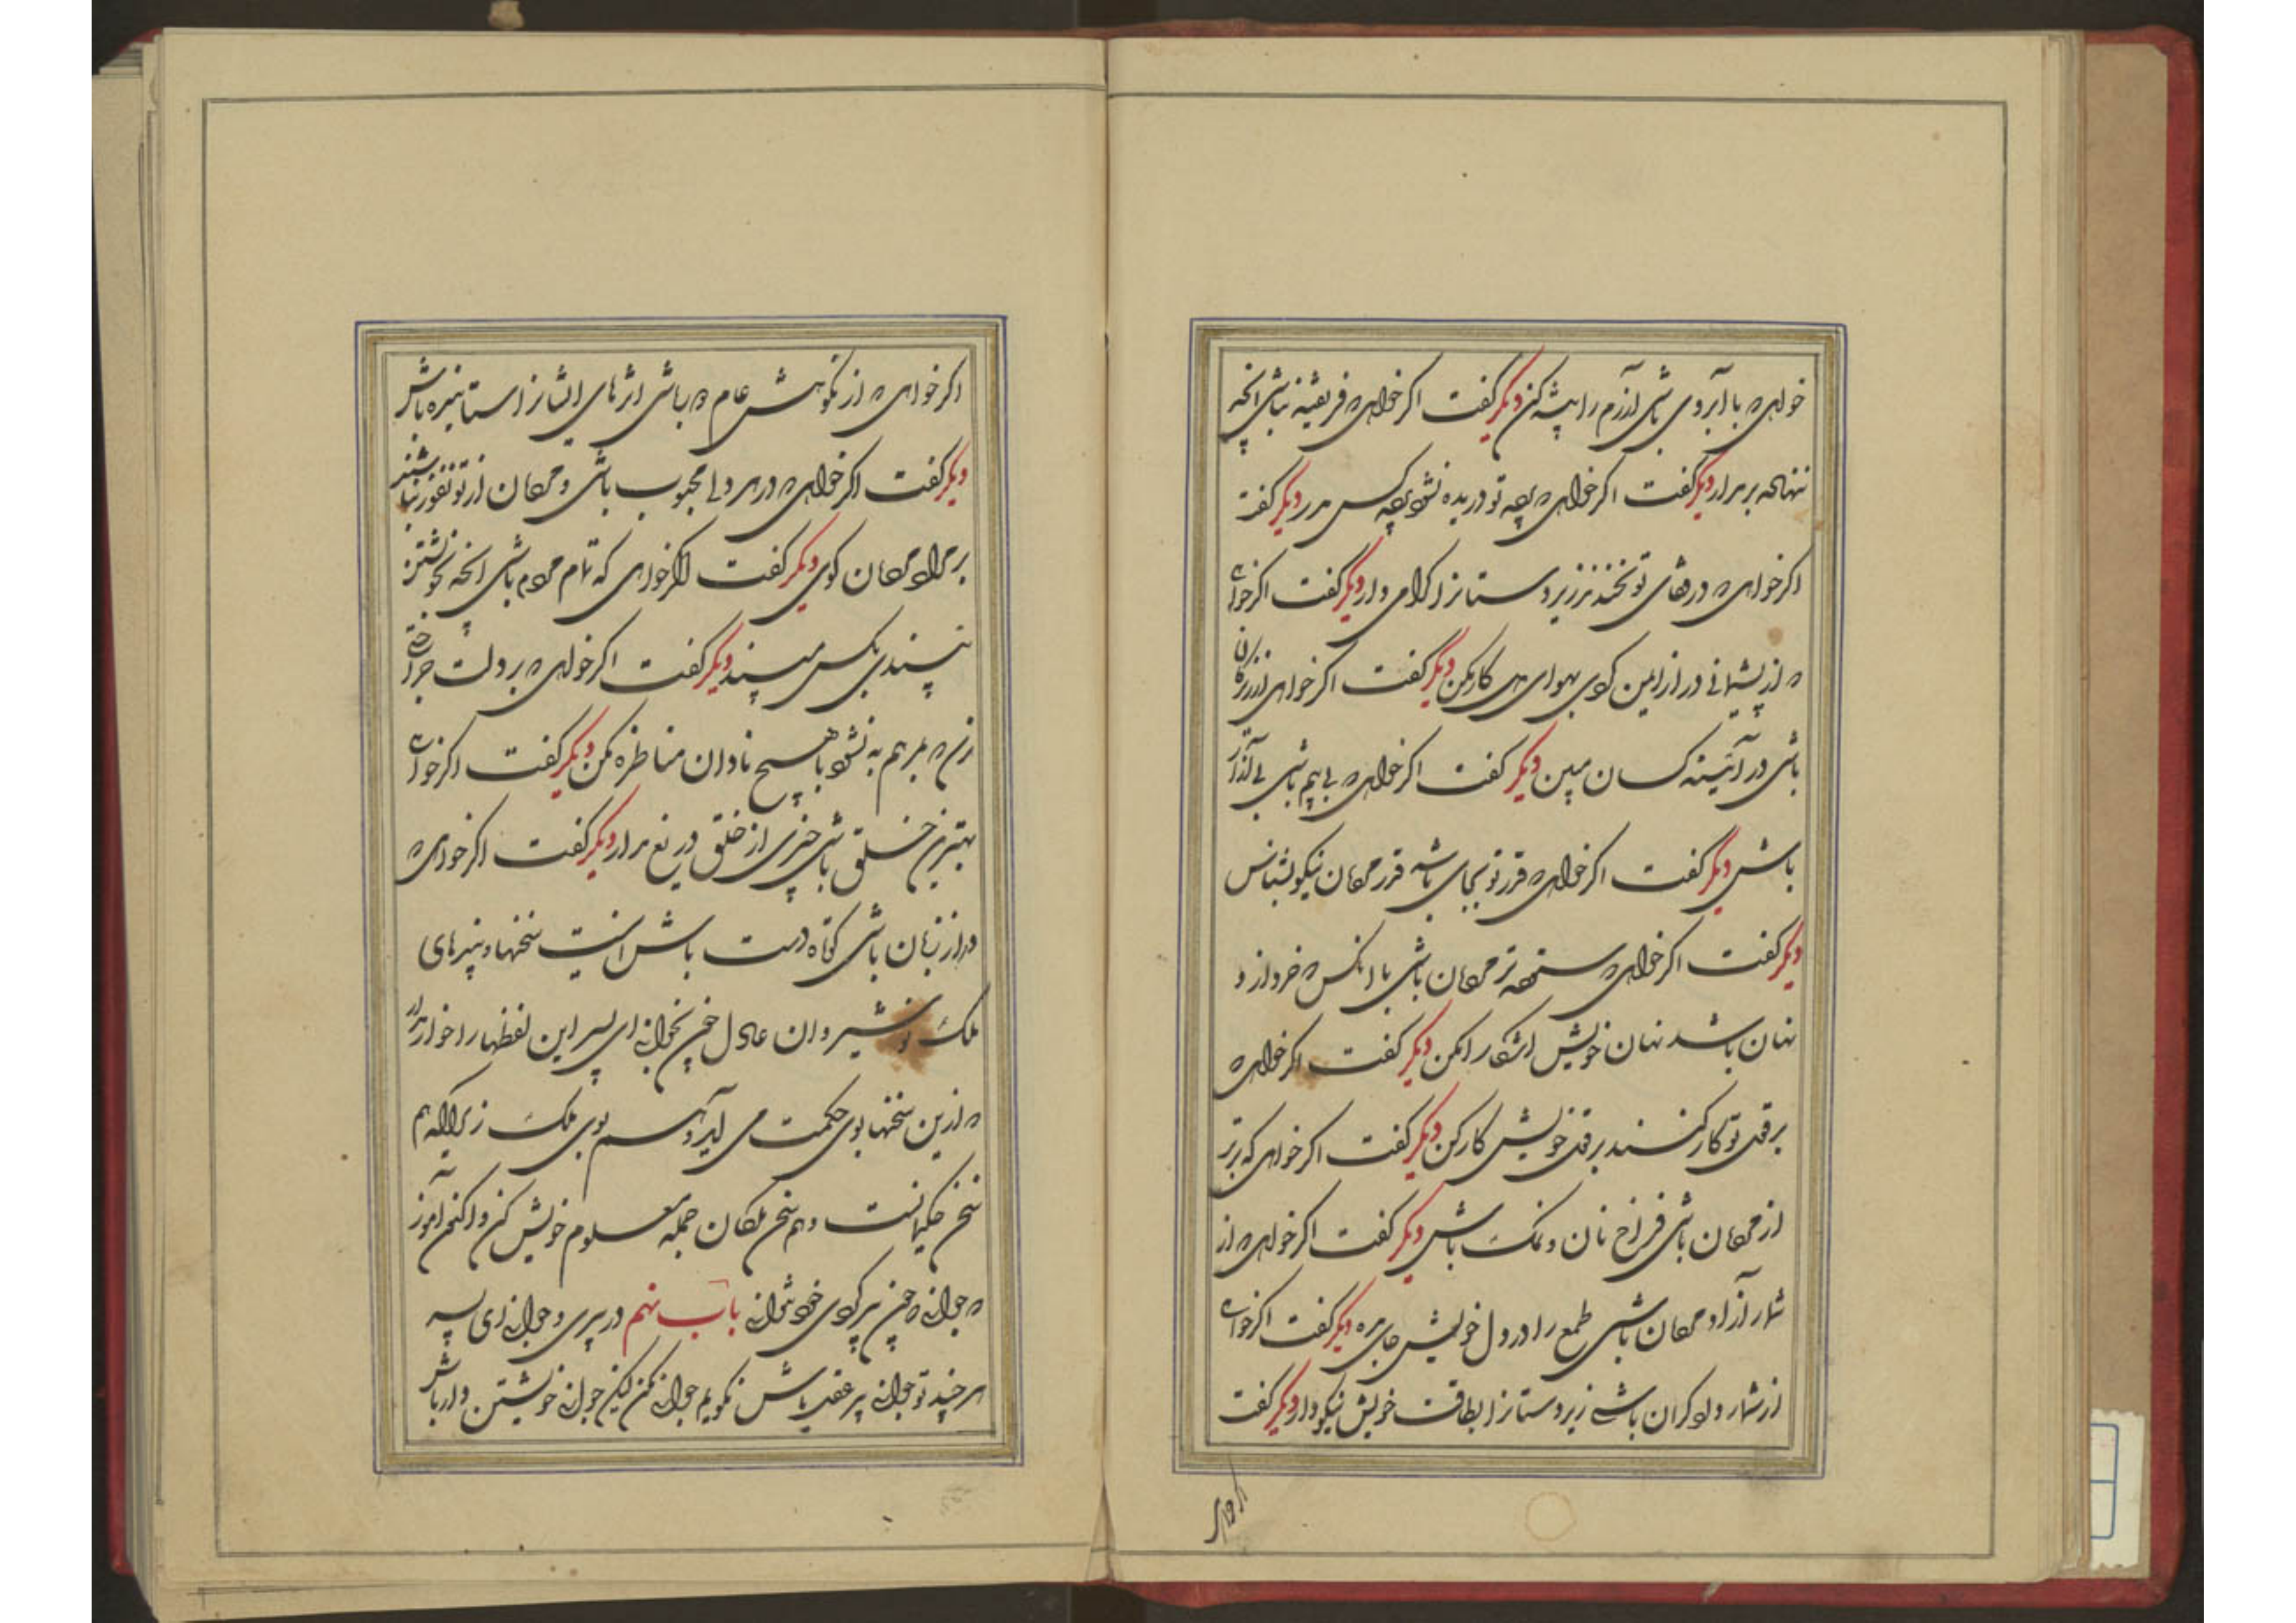 خواهی که با آبروی باشی آزرم را پیشه کن دیگر گفت اگر خواهی که فریفته نباشی آنچه
ننهاده برمدار دیگر گفت اگر خواهی که پرده تو دریده نشود پرده کس مدر دیگر گفت
اگر خواهی که در قفای تو نخندند زیردستانرا گرامی دار دیگر گفت اگر خواهی
که از پشیمانی دراز ایمن گردی بهوای دل کار مکن دیگر گفت اگر خواهی از زیرکان
باشی در آئینه کسان مبین دیگر گفت اگر خواهی که بی بیم باشی بی آزار
باش دیگر گفت اگر خواهی که قدر تو بجای باشد قدر مردمان نیکو بشناس
دیگر گفت اگر خواهی که ستوده تر مردمان باشی با آنکس که خرد از و
نهان باشد نهان خویش آشکارا مکن دیگر گفت اگر خواهی که
بر قول تو کار کنند بر قول خویش کار کن دیگر گفت اگر خواهی که برتر
از مردمان باشی فراخ نان و نمک باش دیگر گفت اگر خواهی که از
شمار آزاد مردمان باشی طمع را در دل خویش جای مده دیگر گفت اگر خواهی
از شمار دادگران باشی زیردستانرا بطاقت خویش نیکو دار دیگر گفت
اگر خواهی
اگر خواهی که از نکوهش عام دور باشی اثرهای ایشانرا ستاینده باش
دیگر گفت اگر خواهی که در هر دلی محبوب باشی و مردمان از تو نفور نباشند
بر مراد مردمان گوی دیگر گفت اگر خواهی که تمام مردم باشی آنچه بخویشتن
نپسندی بکس مپسند دیگر گفت اگر خواهی که بر دلت جراحتی
نرسد که بمرهم به نشود با هیچ نادان مناظره مکن دیگر گفت اگر خواهی
بهترین خلق باشی چیزی از خلق دریغ مدار دیگر گفت اگر خواهی که
دراز زبان باشی کوتاه دست باش اینست سخنها و پندهای
ملک نوشیروان عادل چون بخوانی ای پسر این لفظها را خوار مدار
که ازین سخنها بوی حکمت می آید و هم بوی ملک زیرا که هم
سخن حکیمانست و هم سخن ملکان جمله معلوم خویش کن و اکنون آموز
که جوانی که چون پیر گردی خود نتوانی باب نهم در پیری و جوانی ای پسر
هر چند تو جوانی پیر عقل باش نگویم جوانی مکن لیکن جوانی خویشتن دار باش